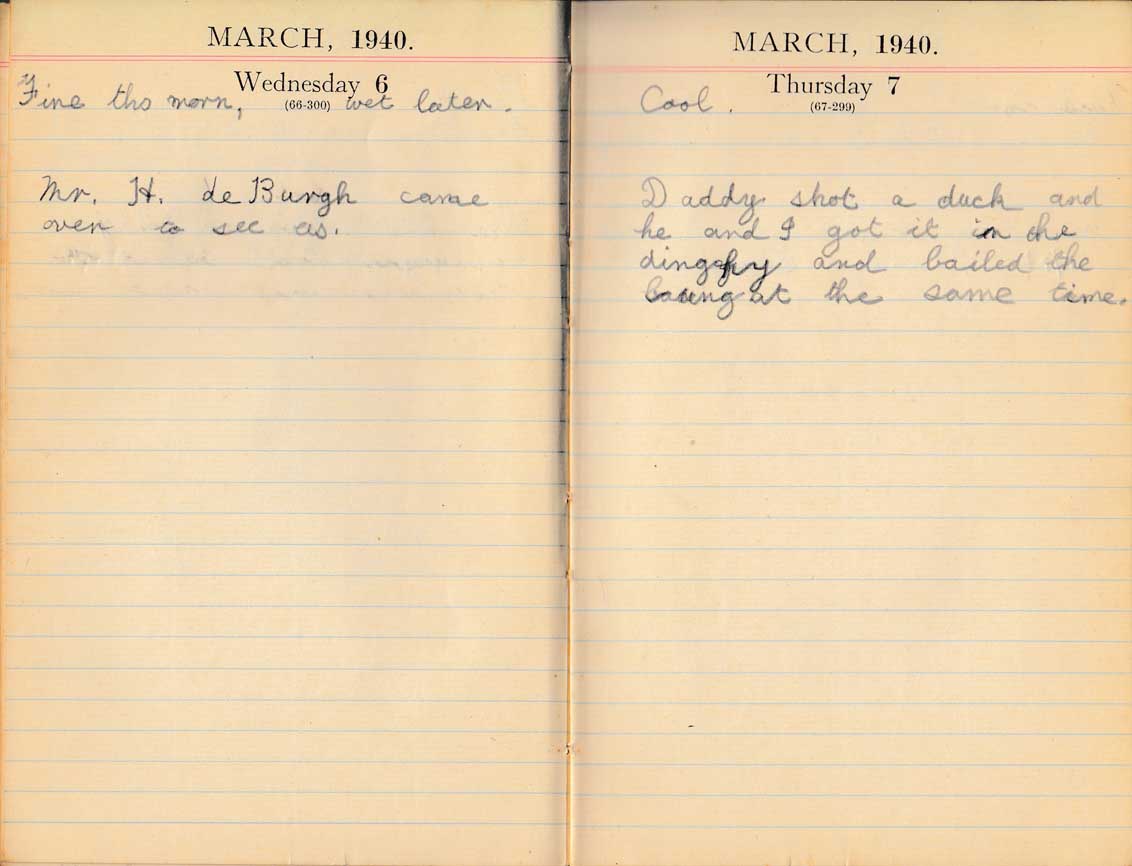 MARCH, 1940.
Wednesday 6
(66-300)
Fine tho morn, wet later.
Mr. H. de Burgh came
over to see us.
MARCH, 1940.
Thursday 7
(67-299)
Cool.
Daddy shot a duck and
he and I got it in the
dinghy and bailed the
at the same time.